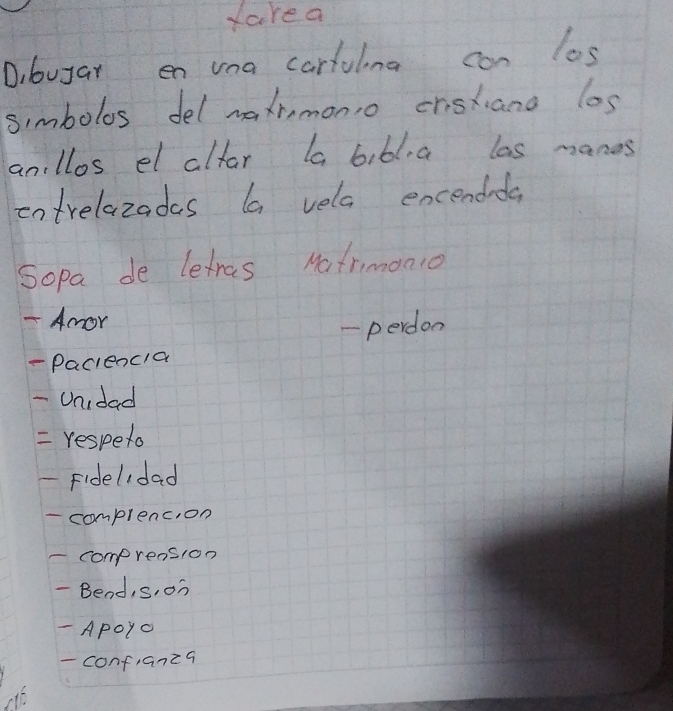 tarea
Dibujar en una cartulina con los
simbolos del matrimonio cristiano los
anillos el altar la biblia las manos
entrelazadas la vela encendida
Sopa de letras Matrimonio
- Amor
- perdon
- Paciencia
- Unidad
= respeto
- Fidelidad
- complencion
- comprension
- Bendisión
- Apoyo
- confianza